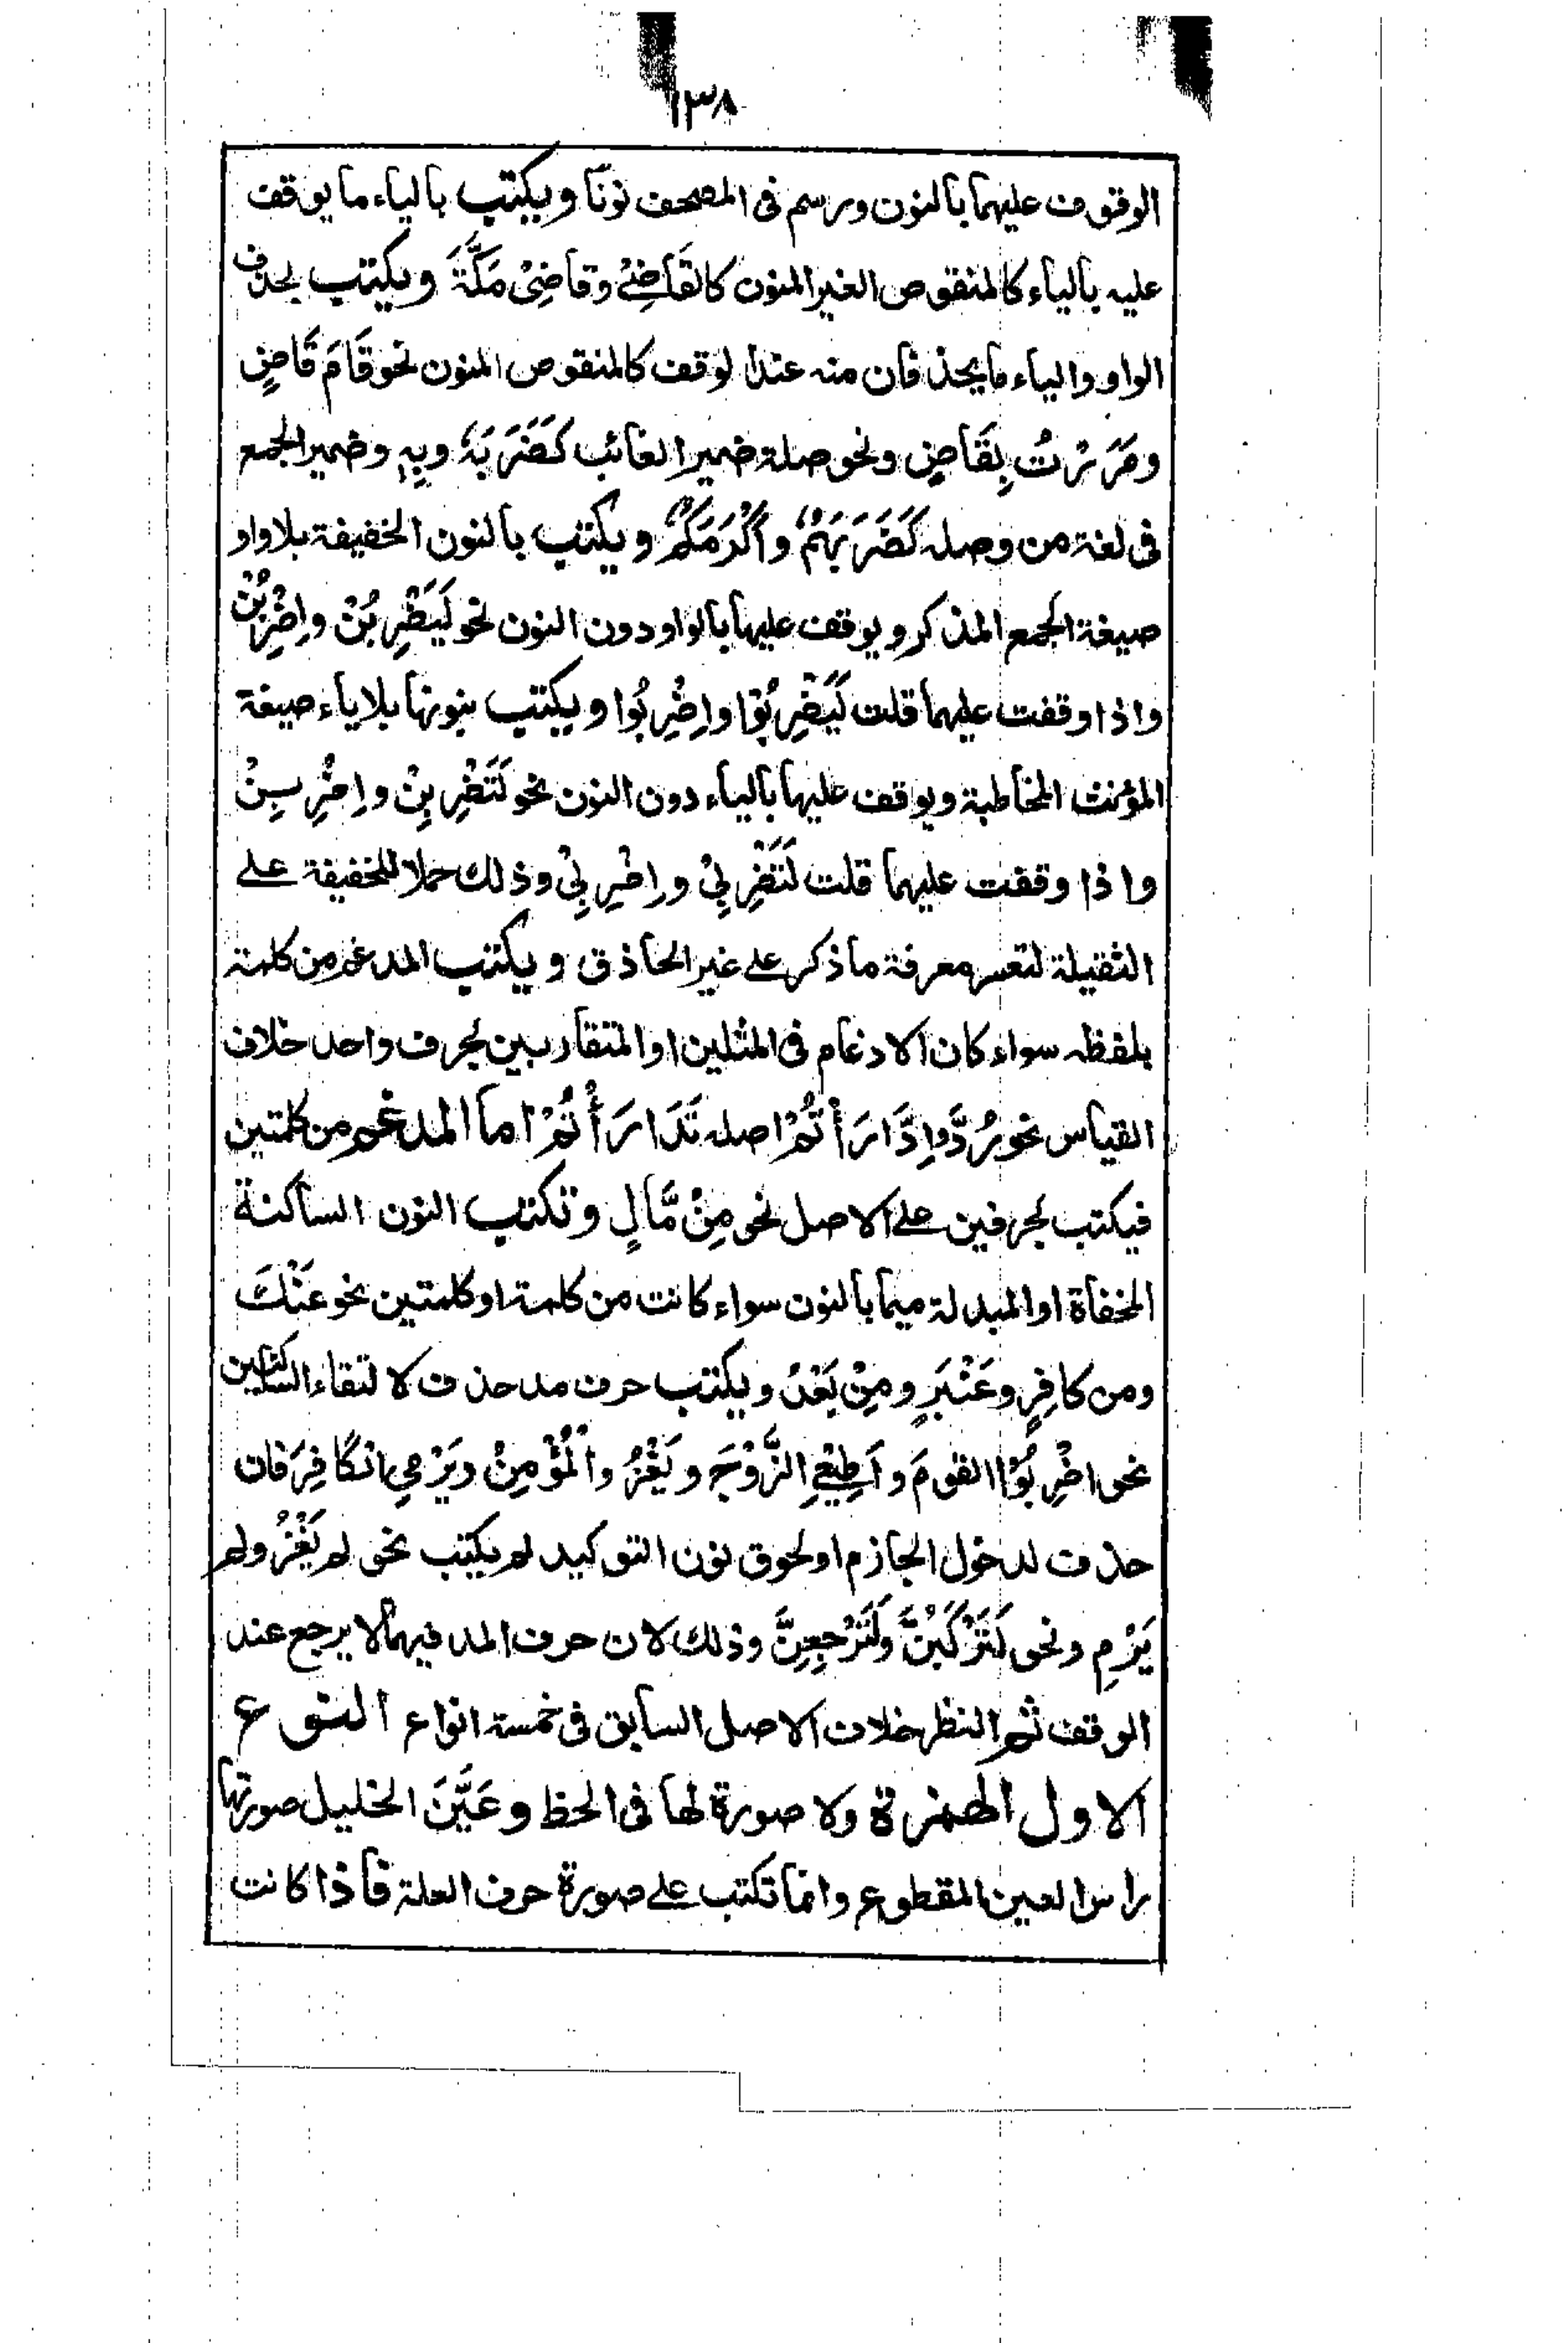 ١٣٨
الوقوف عليهما بالنون ورسم فى المصحف نونا ويكتب بالياء ما يوقف
عليه بالياء كالمنقوص الغير المنون كالقَاضِىْ وقاضِىْ مَكَّةَ ويكتب بحذف
الواو والياء ما يحذفان منه عند الوقف كالمنقوص المنون نحو قَامَ قَاضٍ
ومَرَرْتُ بِقَاضٍ ونحو صلة ضمير الغائب كَضَرَبَهٗ وبِهٖ وضمير الجمع
فى لغة من وصله كَضَرَبَهُمْ وأَكْرَمَكُمْ ويكتب بالنون الخفيفة بلا واو
صيغة الجمع المذكر ويوقف عليها بالواو دون النون نحو لَيَضْرِبُنْ واِضْرِبُنْ
واذا وقفت عليهما قلت لَيَضْرِبُوْا واِضْرِبُوا ويكتب بنونها بلا ياء صيغة
المؤنث المخاطبة ويوقف عليها بالياء دون النون نحو لَتَضْرِبِنْ واِضْرِبِنْ
واذا وقفت عليهما قلت لَتَضْرِبِىْ واِضْرِبِىْ وذلك حملا للخفيفة على
الثقيلة لتعسر معرفة ما ذكر على غير الحاذق ويكتب المدغم من كلمة
بلفظه سواء كان الادغام فى المثلين او المتقاربين بحرف واحد خلاف
القياس نحو رُدَّ واِدَّارَأْتُمْ اصله تَدَارَأْتُمْ اما المدغم من كلمتين
فيكتب بحرفين على الاصل نحو مِنْ مَّالٍ وتكتب النون الساكنة
المخفاة او المبدلة ميما بالنون سواء كانت من كلمة او كلمتين نحو عَنْكَ
ومن كافِرٍ وعَنْبَرٍ ومِنْ بَعْدُ ويكتب حرف مد حذف لالتقاء الساكنين
نحو اضْرِبُوْا القومَ واَطِيْعِى الزَّوْجَ ويَغْزُ والْمُؤْمِنْ ويَرْمِى الكَافِرَ فان
حذف لدخول الجازم او لحوق نون التوكيد لم يكتب نحو لم يَغْزُ ولم
يَرْمِ ونحو لَتَرْكَبُنَّ ولَتَرْجِعِنَّ وذلك لان حرف المد فيهما لا يرجع عند
الوقف ثم النظر خلاف الاصل السابق فى خمسة انواع النوع
الاول الهمزة ولا صورة لها فى الخط وعَيَّنَ الخليل صورتها
راس العين المقطوع وانما تكتب على صورة حرف العلة فاذا كانت